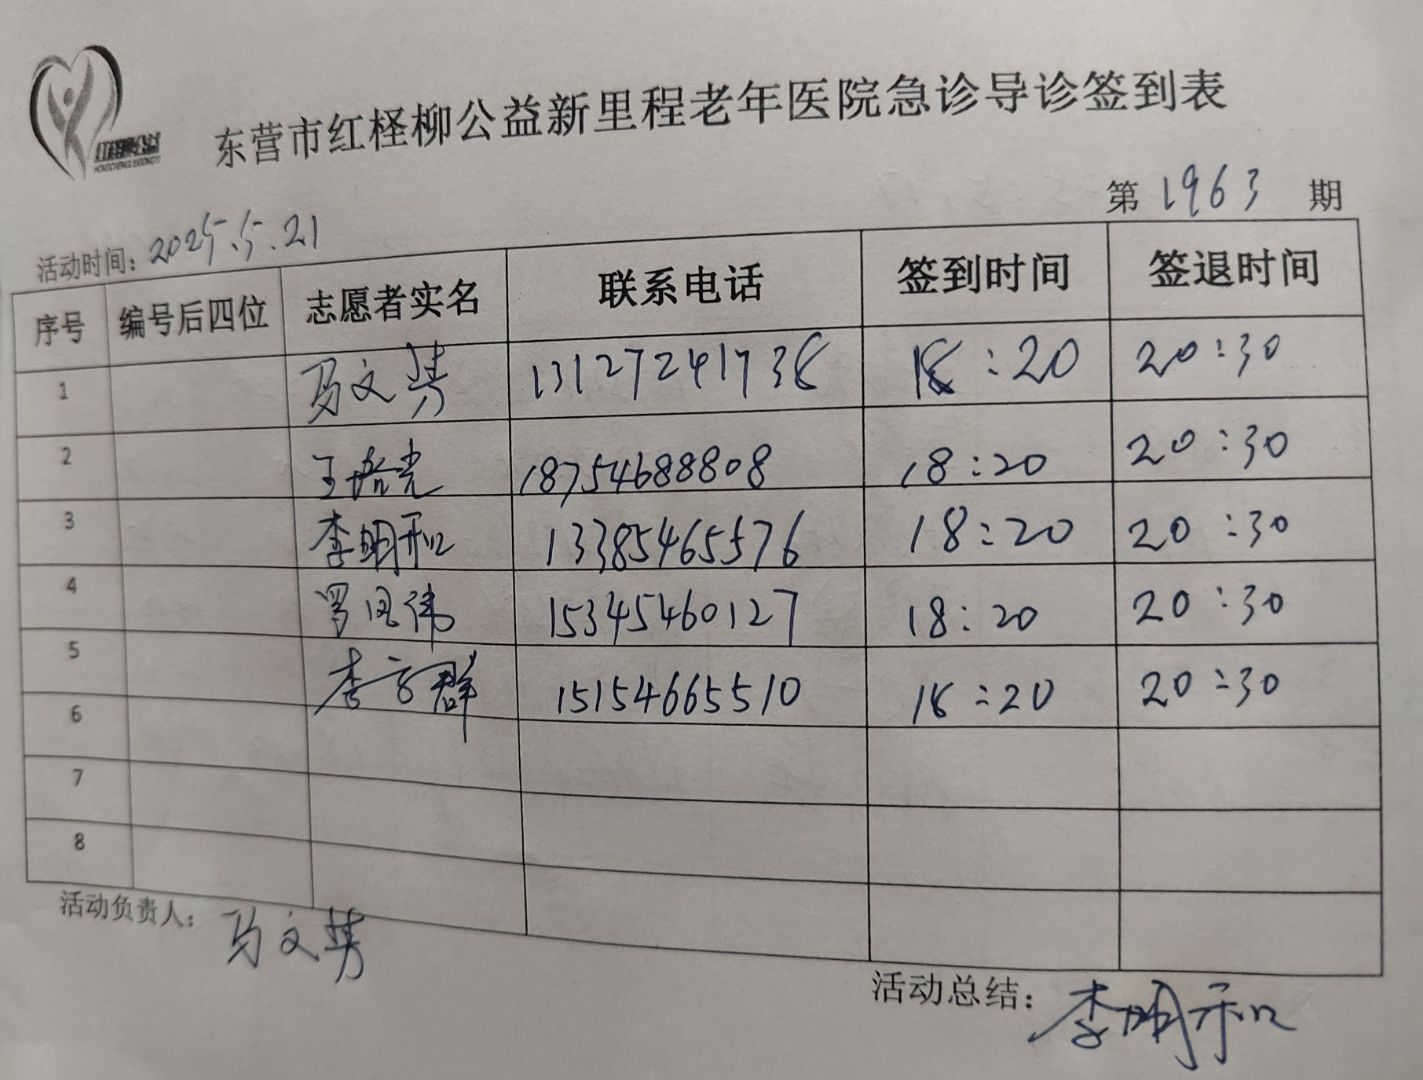 东营市红柽柳公益新里程老年医院急诊导诊签到表
第 1963 期
活动时间：2025.5.21
序号 编号后四位 志愿者实名 联系电话 签到时间 签退时间
1 马文 13127241738 18:20 20:30
2 王培光 18754688808 18:20 20:30
3 李明和 13385465576 18:20 20:30
4 罗凤伟 15345460127 18:20 20:30
5 李言群 15154665510 18:20 20:30
6
7
8
活动负责人：马文
活动总结：李明和